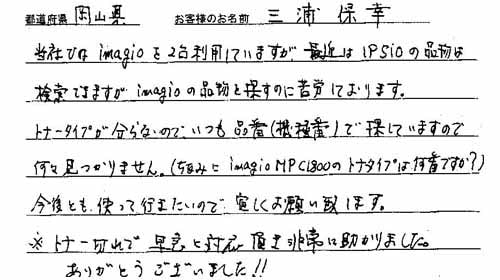 都道府県 岡山県 お客様のお名前 三浦保幸
当社では imagio を2台利用していますが、最近は IPSiO の品物は
検索できますが imagio の品物を探すのに苦労しております。
トナータイプが分らないので、いつも品番(機種番)で探していますので
何も見つかりません。(ちなみに imagio MPC1800のトナタイプは何番ですか?)
今後とも、使って行きたいので宜しくお願い致します。
※ トナー切れで早急に対応頂き非常に助かりました。
ありがとうございました!!